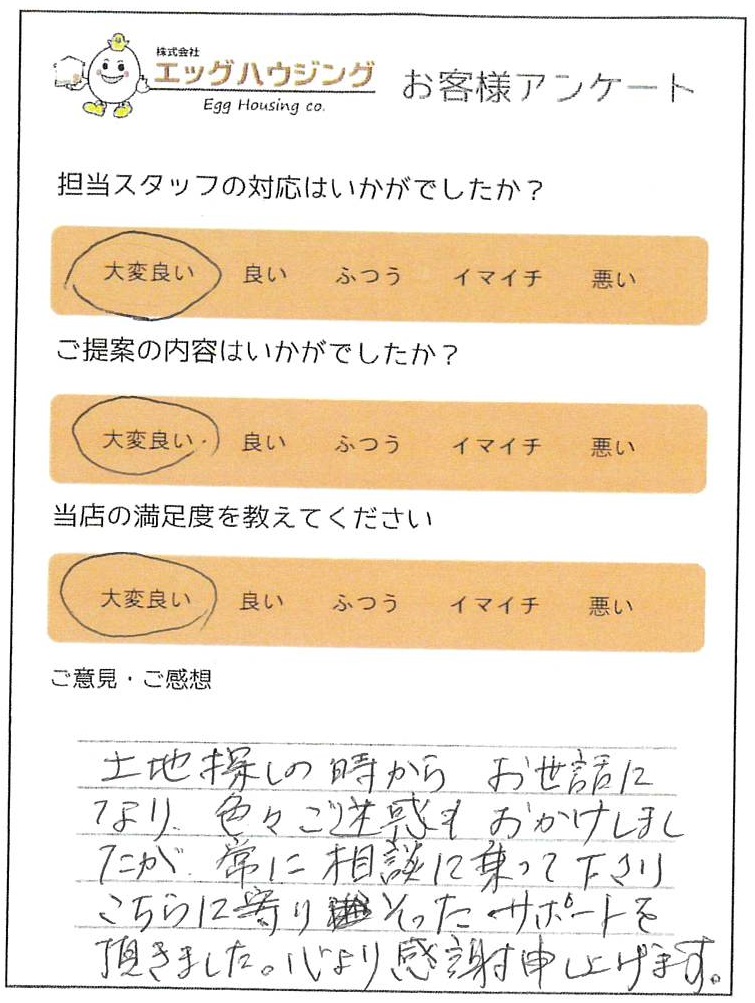 株式会社
エッグハウジング
Egg Housing co.
お客様アンケート
担当スタッフの対応はいかがでしたか？
大変良い 良い ふつう イマイチ 悪い
ご提案の内容はいかがでしたか？
大変良い 良い ふつう イマイチ 悪い
当店の満足度を教えてください
大変良い 良い ふつう イマイチ 悪い
ご意見・ご感想
土地探しの時から お世話に
なり、色々ご迷惑も おかけしまし
たが、常に相談に乗って下さり
こちらに寄り そった サポートを
頂きました。心より感謝申し上げます。